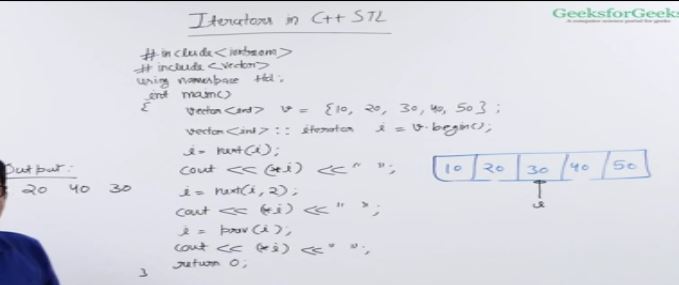 Iterators in C++ STL
GeeksforGeeks
A computer science portal for geeks
#include<iostream>
#include<vector>
using namespace std;
int main()
{
vector<int> v = {10, 20, 30, 40, 50};
vector<int>:: iterator i = v.begin();
i = next(i);
cout << (*i) << " ";
i = next(i, 2);
cout << (*i) << " ";
i = prev(i);
cout << (*i) << " ";
return 0;
}
Output:
20 40 30
10 20 30 40 50
i